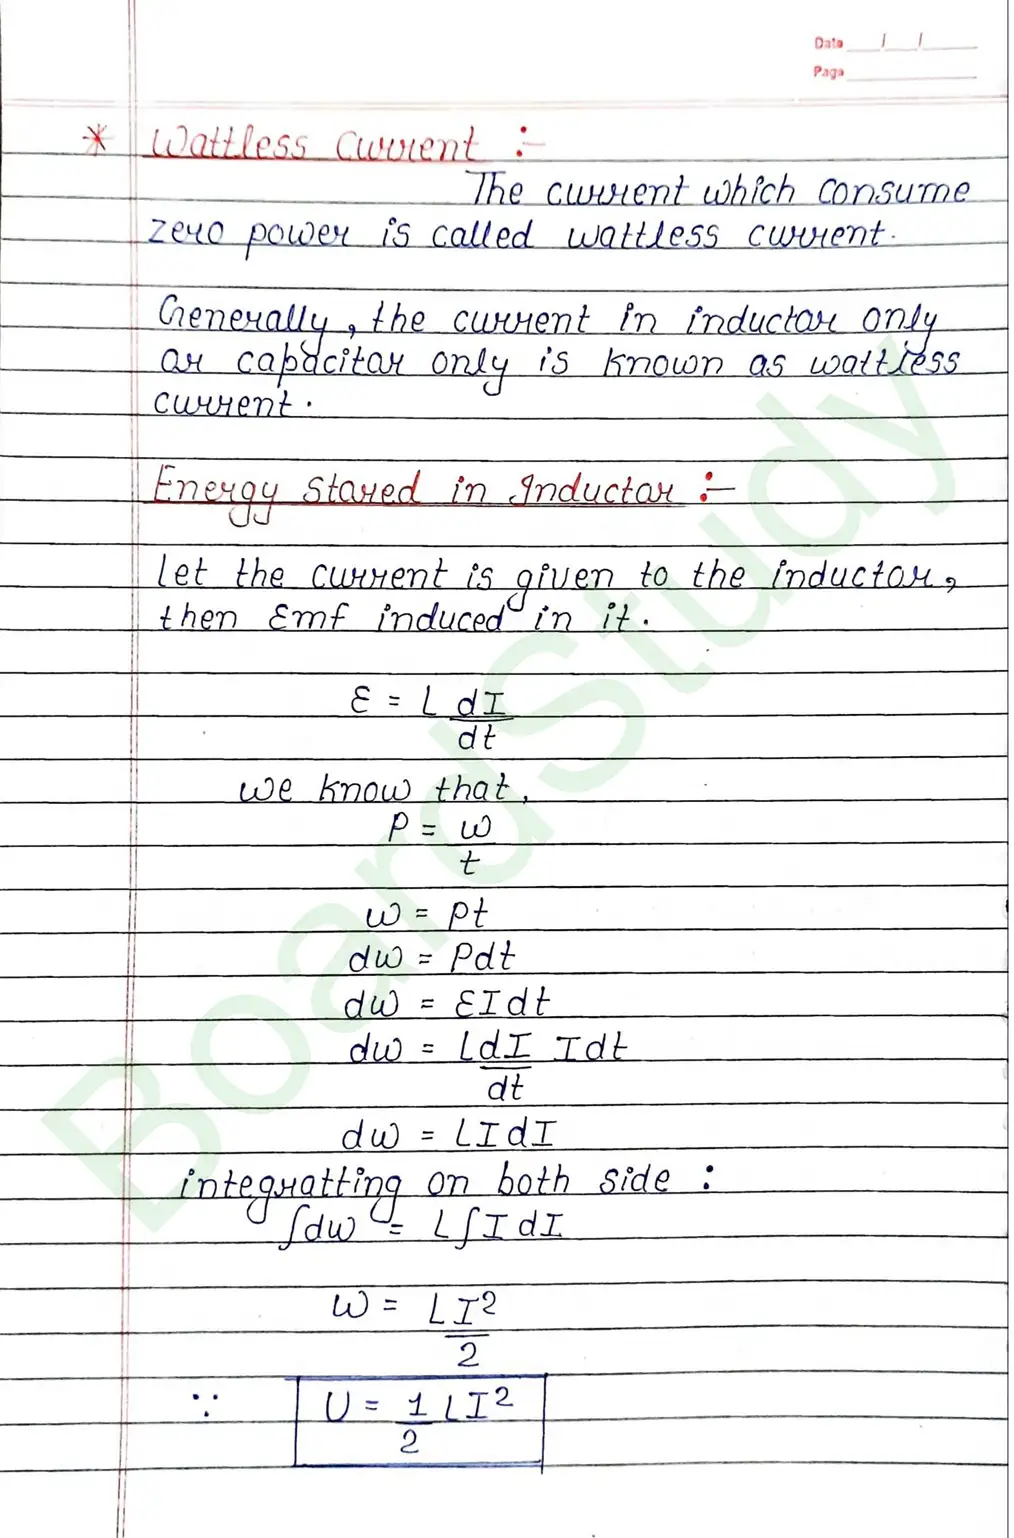 Date __/__/__
Page
* Wattless Current :-
The current which consume
zero power is called wattless current.
Generally, the current in inductor only
or capacitor only is known as wattless
current.
Energy stored in Inductor :-
Let the current is given to the inductor,
then Emf induced in it.
ε = L dI/dt
we know that,
P = w/t
w = pt
dw = Pdt
dw = εIdt
dw = LdI/dt Idt
dw = LIdI
integratting on both side :
∫dw = L∫IdI
W = LI²/2
∵ U = 1/2 LI²
BoardStudy